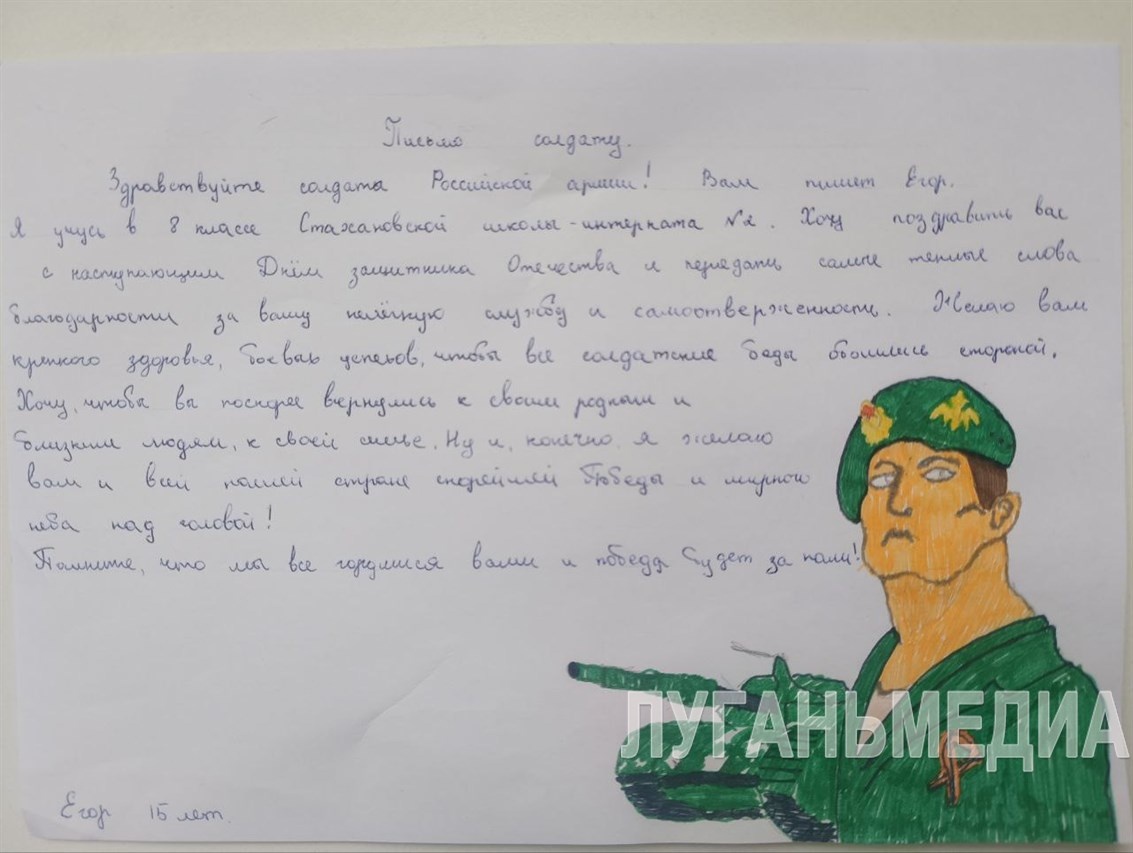 Письмо солдату.
Здравствуйте солдаты Российской армии! Вам пишет Егор.
Я учусь в 8 классе Стахановской школы-интерната №2. Хочу поздравить вас
с наступающим Днём защитника Отечества и передать самые теплые слова
благодарности за вашу нелёгкую службу и самоотверженность. Желаю вам
крепкого здоровья, боевых успехов, чтобы все солдатские беды обошли стороной.
Хочу, чтобы вы поскорее вернулись к своим родным и
близким людям, к своей семье. Ну и, конечно, я желаю
вам и всей нашей стране скорейшей Победы и мирного
неба над головой!
Помните, что мы все гордимся вами и победа будет за нами!
ЛУГАНЬМЕДИА
Егор 15 лет.